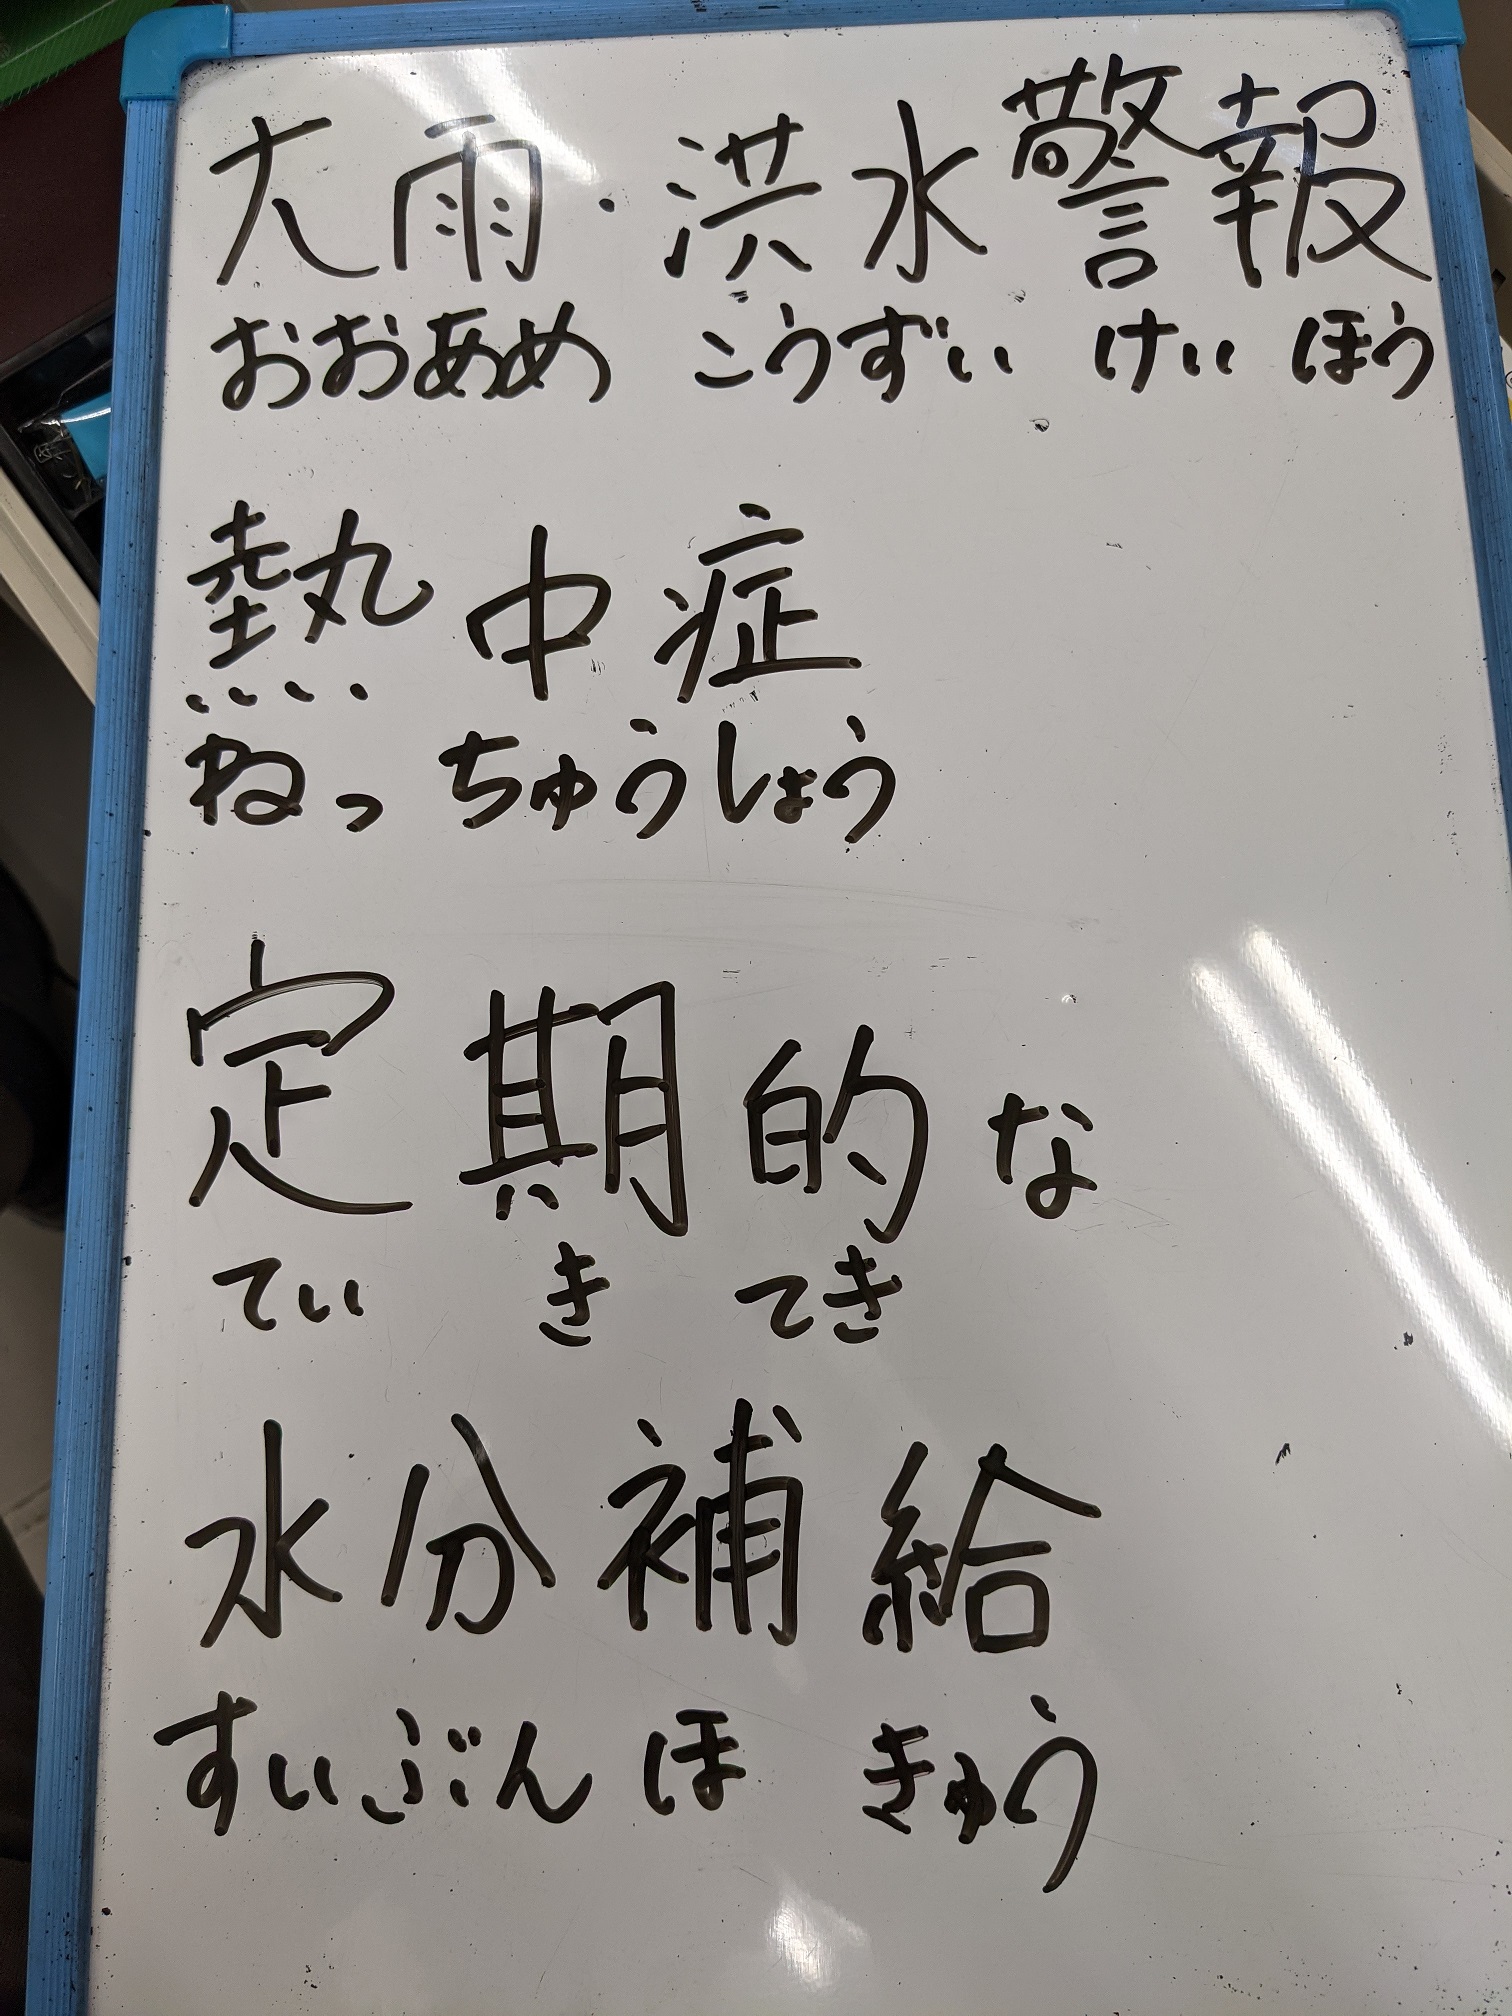 大雨・洪水警報
おおあめ こうずい けいほう
熱中症
ねっちゅうしょう
定期的な
ていきてき
水分補給
すいぶんほきゅう